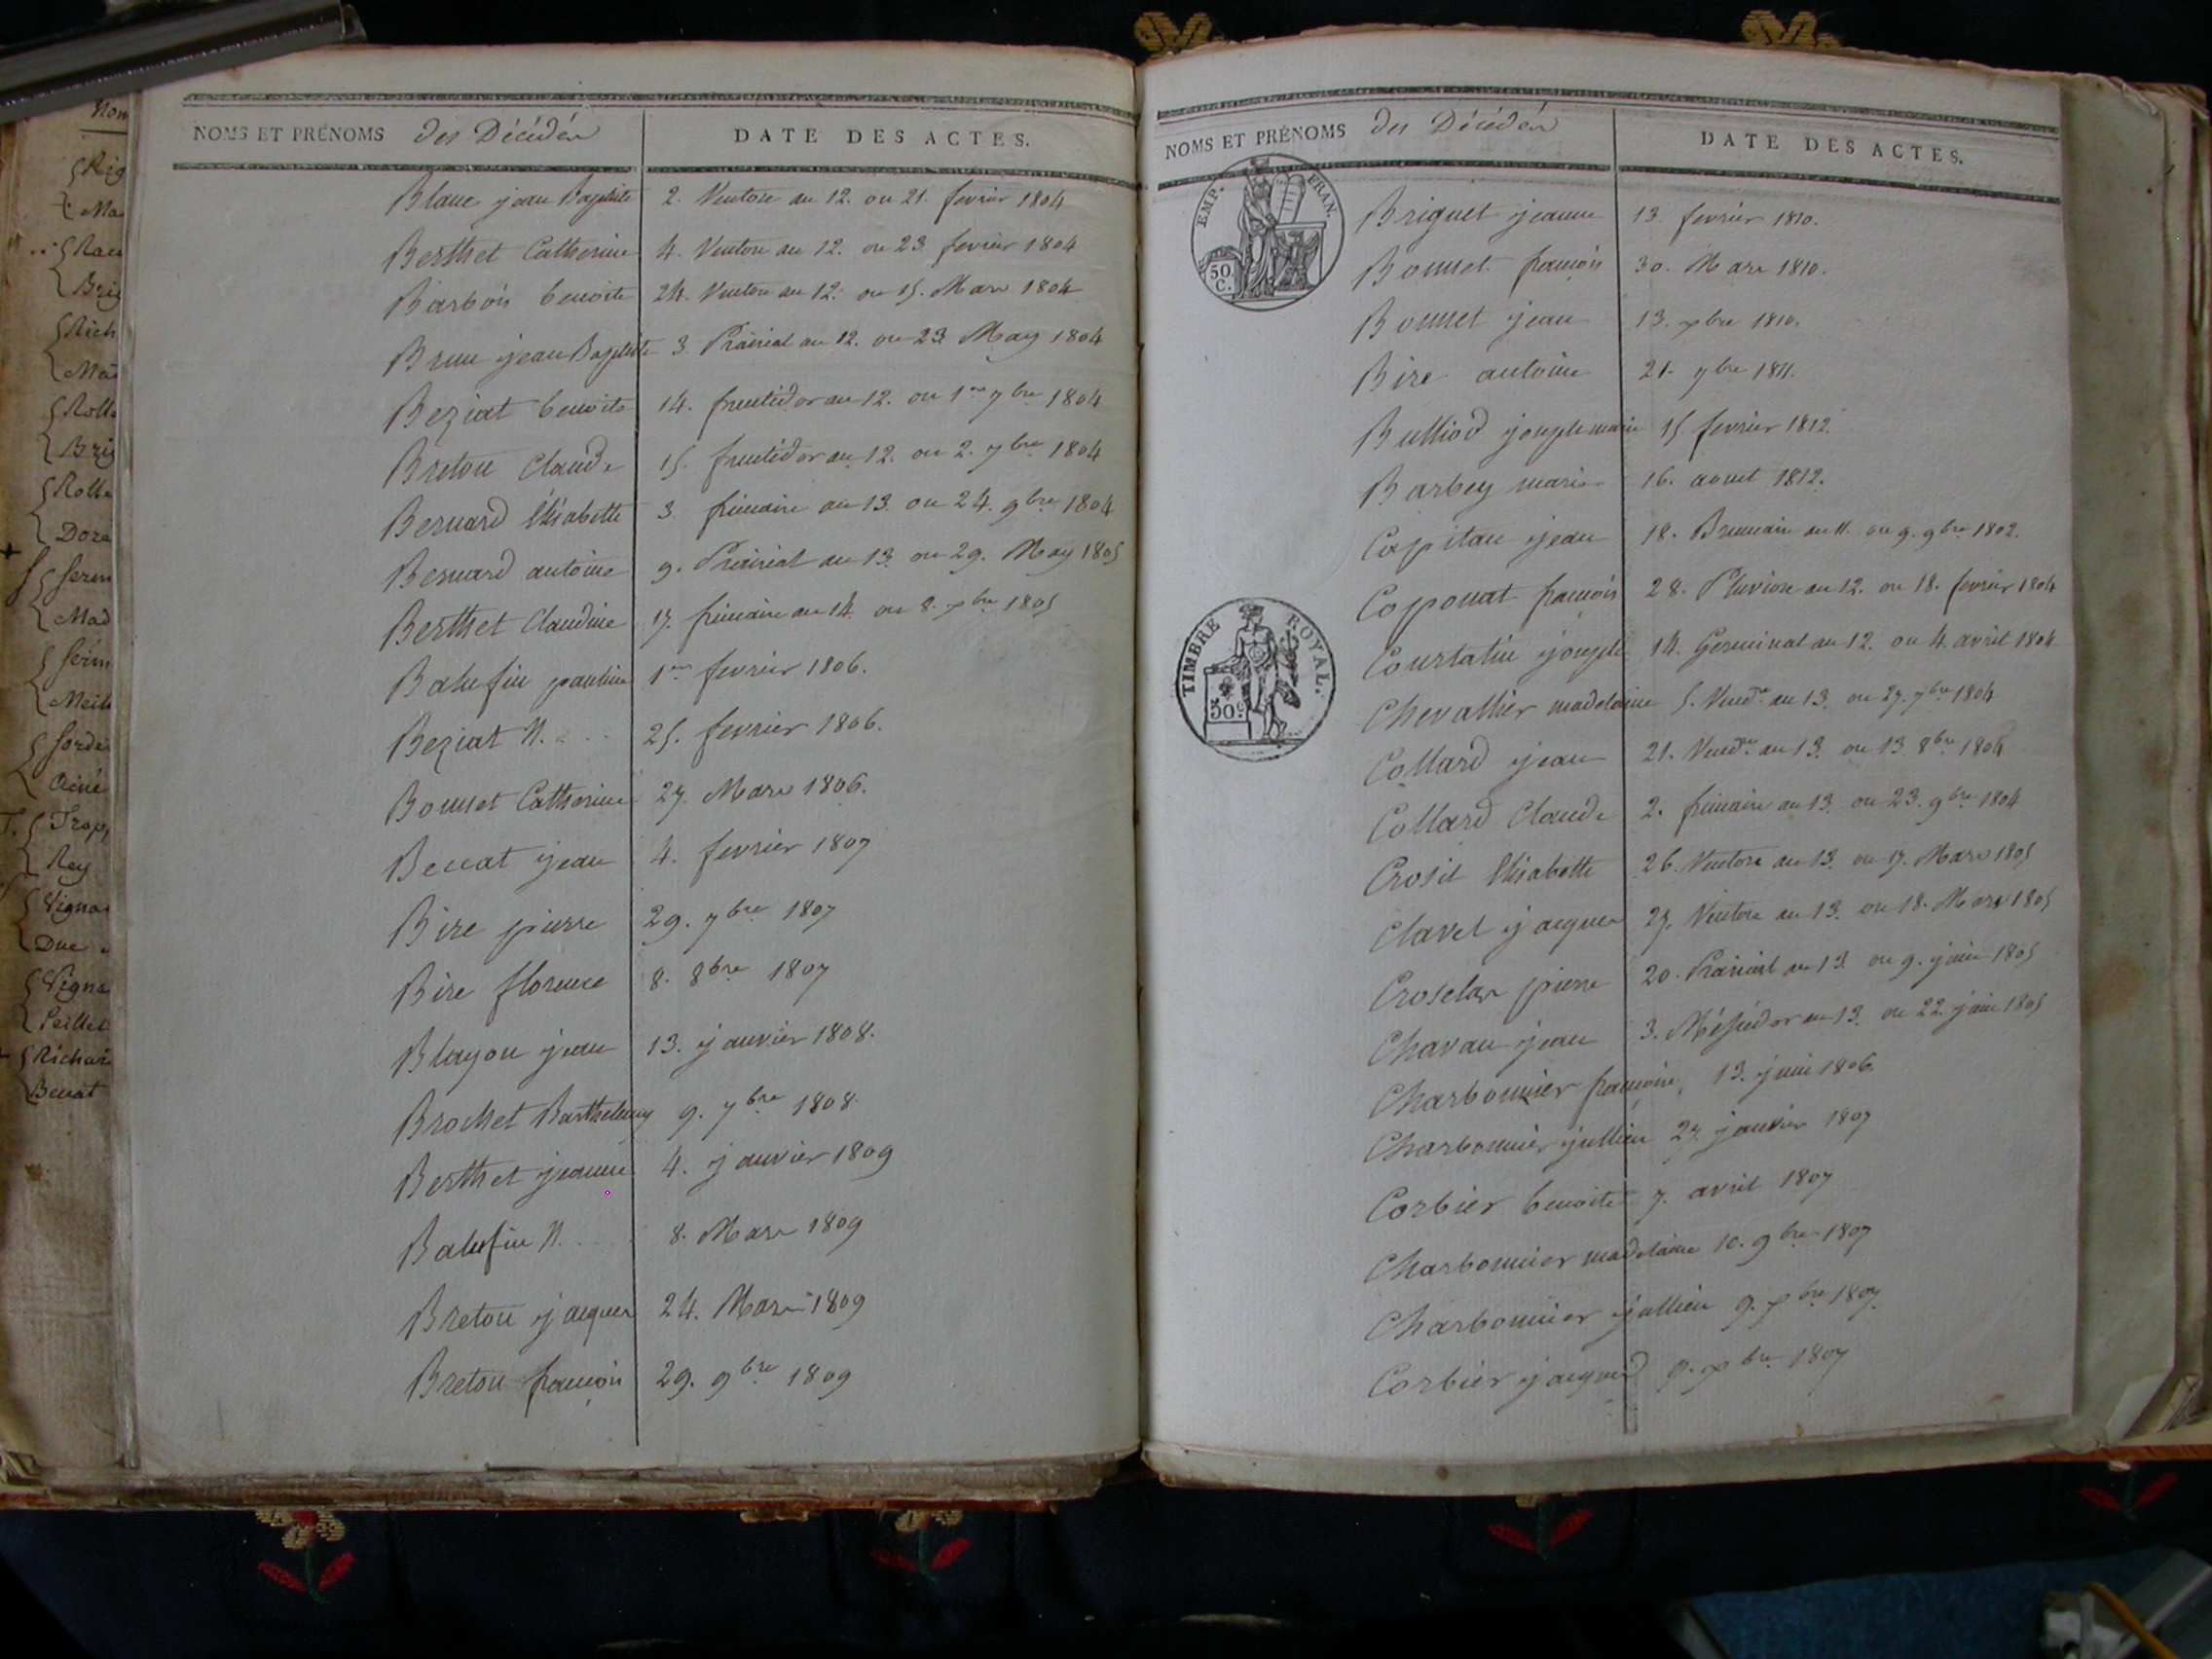 Nom
NOMS ET PRÉNOMS des Décédés
DATE DES ACTES.
Blanc jean Baptiste 2. Ventose an 12. ou 21. fevrier 1804
Berthet Catherine 4. Ventose an 12. ou 23 fevrier 1804
Barbois benoite 24. Ventose an 12. ou 15. Mars 1804
Brun jean Baptiste 3. Prairial an 12. ou 23 May 1804
Beziat benoite 14. fructidor an 12. ou 1er 7bre 1804
Breton Claude 15. fructidor an 12. ou 2. 7bre 1804
Bernard Elisabette 3. frimaire an 13. ou 24. 9bre 1804
Bernard antoine 9. Prairial an 13. ou 29. May 1805
Berthet Claudine 17. frimaire an 14. ou 8. xbre 1805
Balufin pauline 1er fevrier 1806.
Beziat N. 25. fevrier 1806.
Bonnet Catherine 27. Mars 1806.
Benat jean 4. fevrier 1807
Bire pierre 29. 7bre 1807
Bire florence 8. 8bre 1807
Blayon jean 13. janvier 1808.
Brochet Barthelemy 9. 7bre 1808.
Berthet jeanne 4. janvier 1809
Balufin N. 8. Mars 1809
Breton jacques 24. Mars 1809
Breton francois 29. 9bre 1809
NOMS ET PRÉNOMS des Décédés
DATE DES ACTES.
EMP. FRAN.
50 C.
Briguet jeanne 13 fevrier 1810.
Bonnet francois 30. Mars 1810.
Bonnet jean 13. xbre 1810.
Bire antoine 21. 7bre 1811.
Bulliod joseph marie 15 fevrier 1812.
Barbey marie 16. aoust 1812.
Capitan jean 18. Brumaire an 11. ou 9. 9bre 1802.
Coponat francois 28. Pluviose an 12. ou 18. fevrier 1804
TIMBRE ROYAL.
50 c
Constantin joseph 14. Germinal an 12. ou 4. avril 1804
Chevallier madelaine 5. Vend.re an 13. ou 27. 7bre 1804
Collard jean 21. Vend.re an 13. ou 13 8bre 1804
Collard Claude 2. frimaire an 13. ou 23. 9bre 1804
Crosit Elisabette 26. Ventose an 13. ou 17. Mars 1805
Clavel jacques 27. Ventose an 13. ou 18. Mars 1805
Croselas pierre 20. Prairial an 13. ou 9. juin 1805
Chavan jean 3. Messidor an 13. ou 22. juin 1805
Charbonnier francoise 13. juin 1806
Charbonnier jullien 27. janvier 1807
Corbier benoite 7. avril 1807
Charbonnier madelaine 10. 9bre 1807
Charbonnier jullien 9. xbre 1807
Corbier jacques 9. xbre 1807